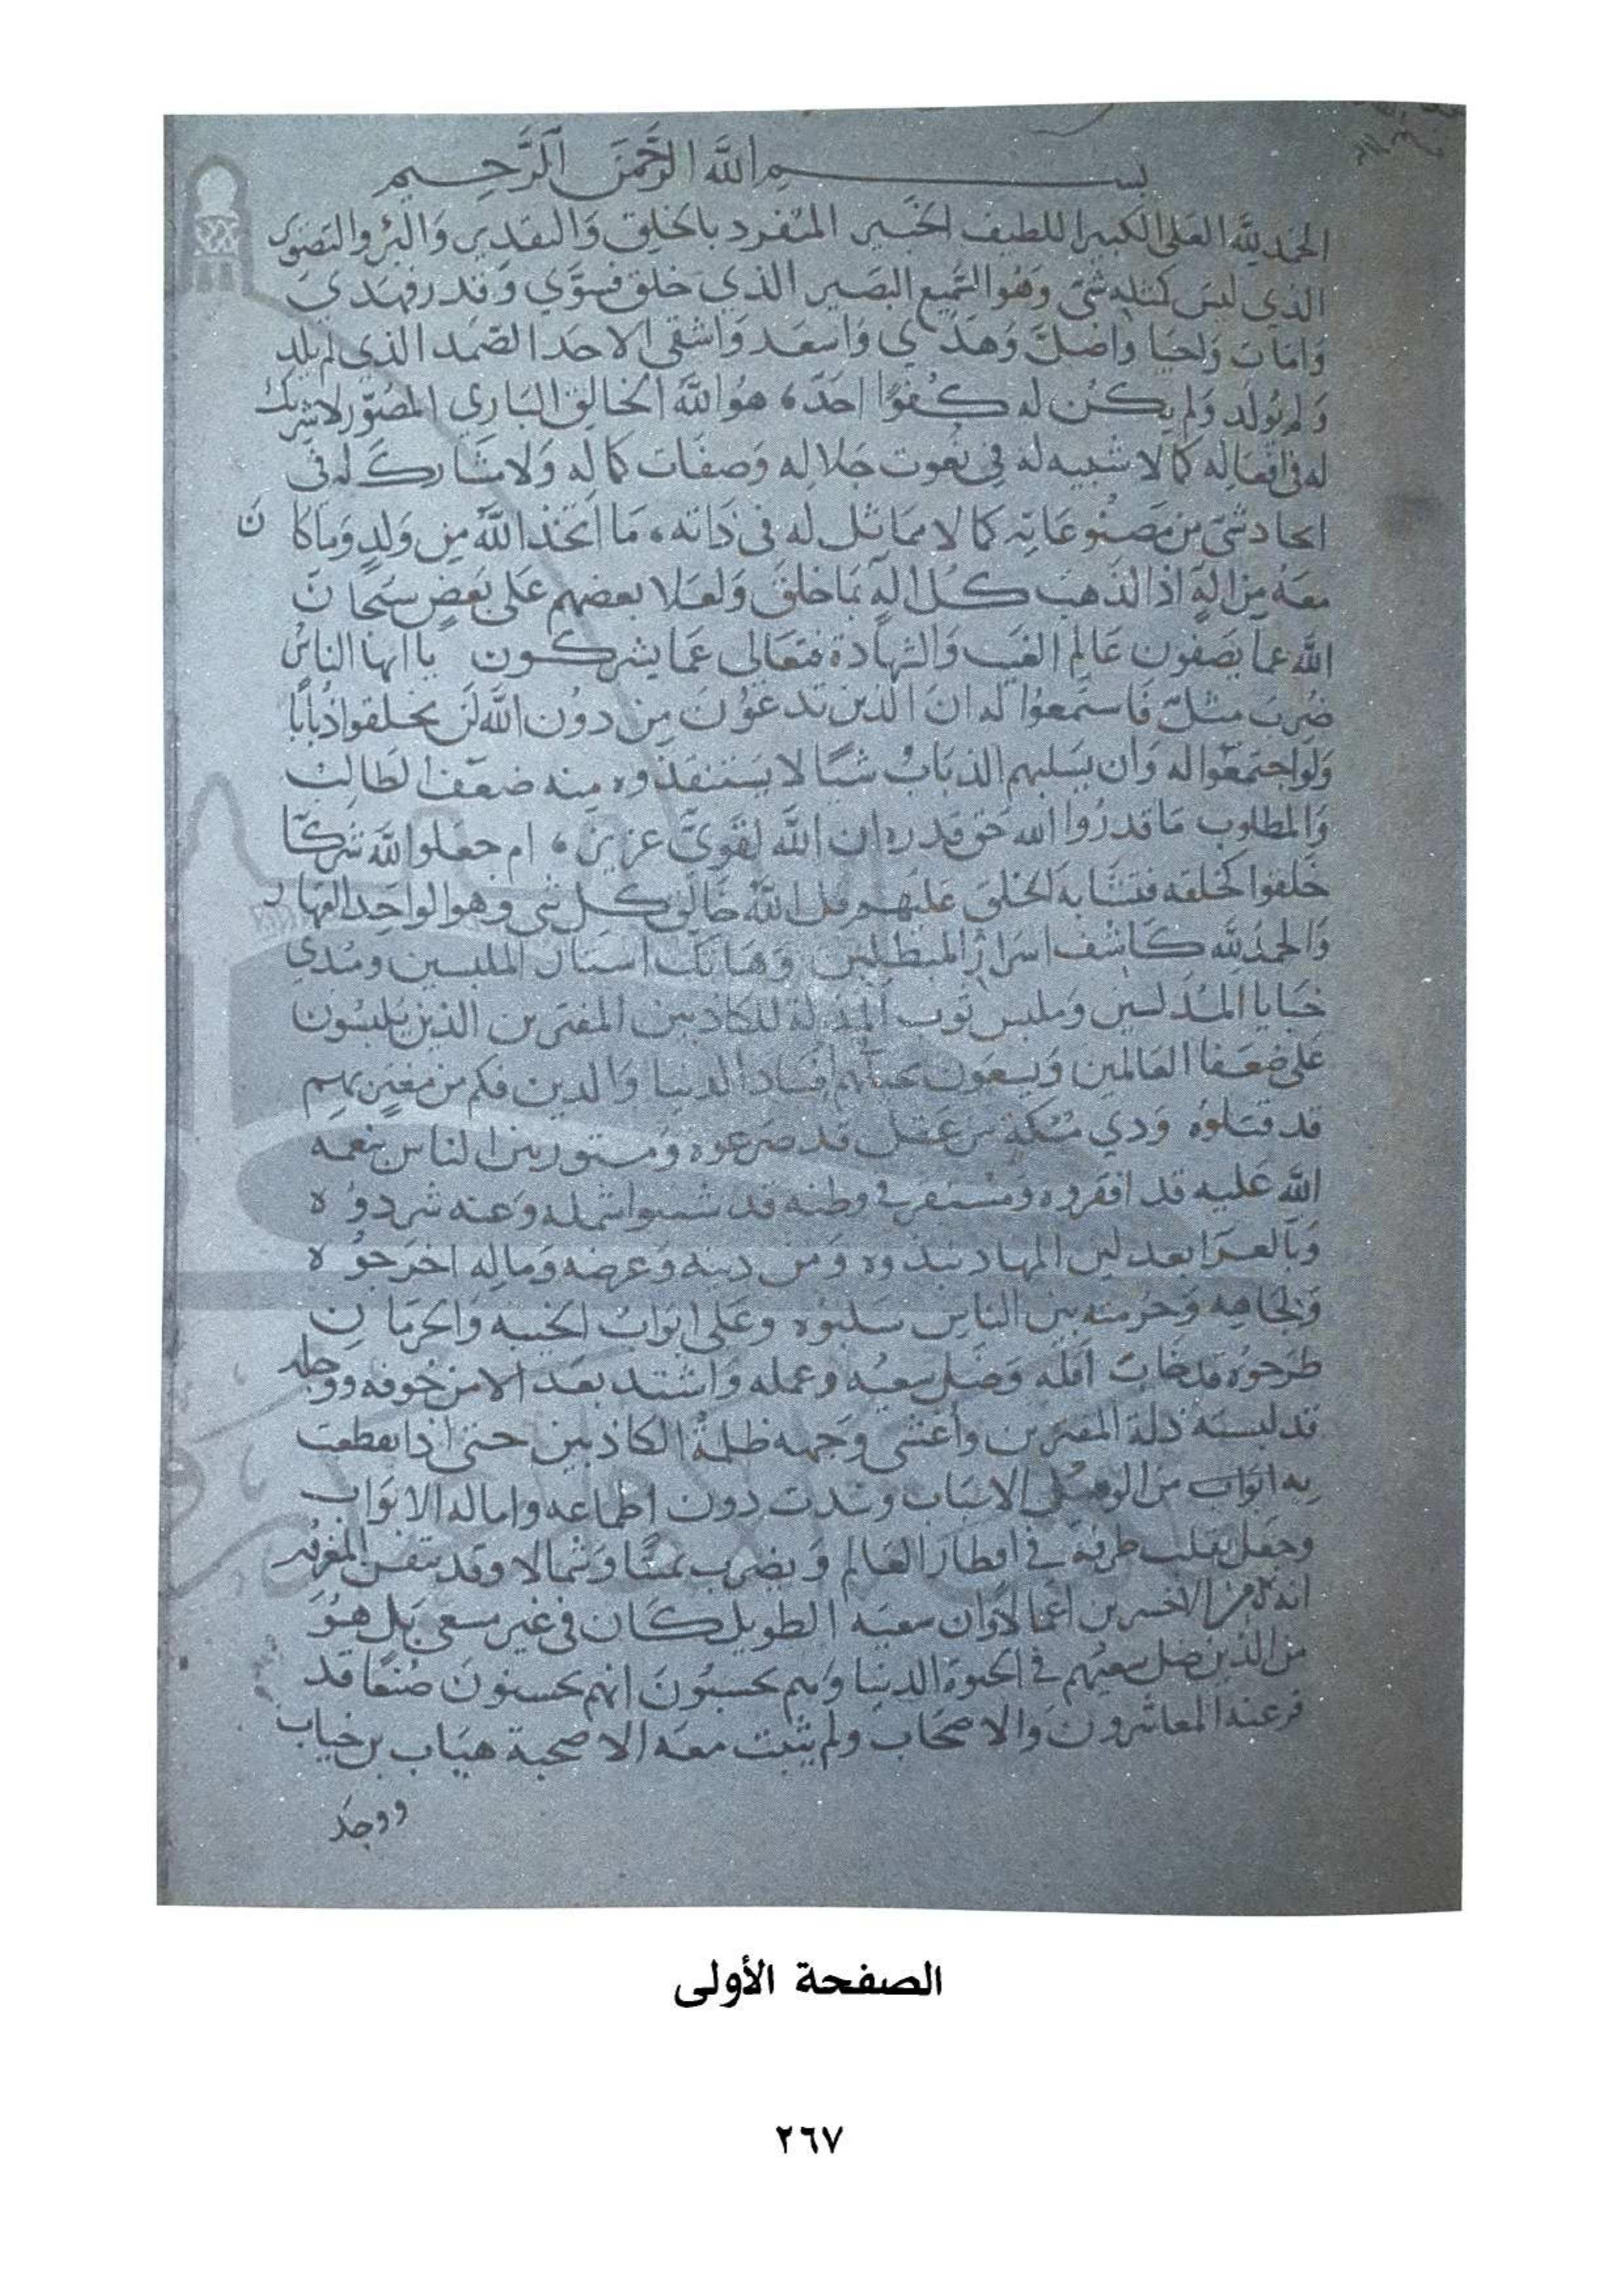 بسم الله الرحمن الرحيم
الحمد لله العلي الكبير اللطيف الخبير المتفرد بالخلق والتقدير والبرء والتصوير
الذي ليس كمثله شيء وهو السميع البصير الذي خلق فسوي وقدر فهدي
وامات واحيا واضل وهدي واسعد واشقى الاحد الصمد الذي لم يلد
ولم يولد ولم يكن له كفوا احد، هو الله الخالق الباري المصور لا شريك
له في افعاله كما لا شبيه له في نعوت جلاله وصفات كماله ولا مشارك له في
ايجاد شيء من مصنوعاته كما لا مماثل له في ذاته، ما اتخذ الله من ولد وما كان
معه من اله اذا لذهب كل اله بما خلق ولعلا بعضهم على بعض سبحان
الله عما يصفون عالم الغيب والشهادة فتعالى عما يشركون يا ايها الناس
ضرب مثل فاستمعوا له ان الذين تدعون من دون الله لن يخلقوا ذبابا
ولو اجتمعوا له وان يسلبهم الذباب شيئا لا يستنقذوه منه ضعف الطالب
والمطلوب ما قدروا الله حق قدره ان الله لقوي عزيز، ام جعلوا لله شركا
خلقوا كخلقه فتشابه الخلق عليهم قل الله خالق كل شيء وهو الواحد القهار
والحمد لله كاشف اسرار المبطلين وهاتك استار الملبسين ومبدي
خبايا المدلسين وملبس ثوب المذلة للكاذبين المفترين الذين يلبسون
على ضعفا العالمين ويسعون افساد الدنيا والدين فكم من مغتر بهم
قد قتلوه وذي مسكة من عقل قد صرعوه ومستور بين الناس بنعمة
الله عليه قد افقروه ومستقر في وطنه قد شتتوا شمله وعنه شردوه
وبالعرا بعد لين المهاد نبذوه ومن دينه وعرضه وماله اخرجوه
ولجاهه وحرمته بين الناس سلبوه وعلى ابواب الخيبة والحرمان
طرحوه قد خاب امله وضل سعيه وعمله واشتد بعد الامن خوفه ووجله
قد لبسته ذلة المفترين واغشى وجهه ظلمة الكاذبين حتى اذا تقطعت
به ابواب من الوصل الاسباب وسدت دون اطماعه واماله الابواب
وجعل يقلب طرفه في اقطار العالم ويضرب يمينا وشمالا وقد تيقن المغرور
انه من الاخسرين اعمالا وان سعيه الطويل كان في غير مسعى بل هو
من الذين ضل سعيهم في الحيوة الدنيا وهم يحسبون انهم يحسنون صنعا قد
فر عنه المعاشرون والاصحاب ولم يثبت معه الا صحبة هياب بن خياب
ووجد
الصفحة الأولى
٢٦٧